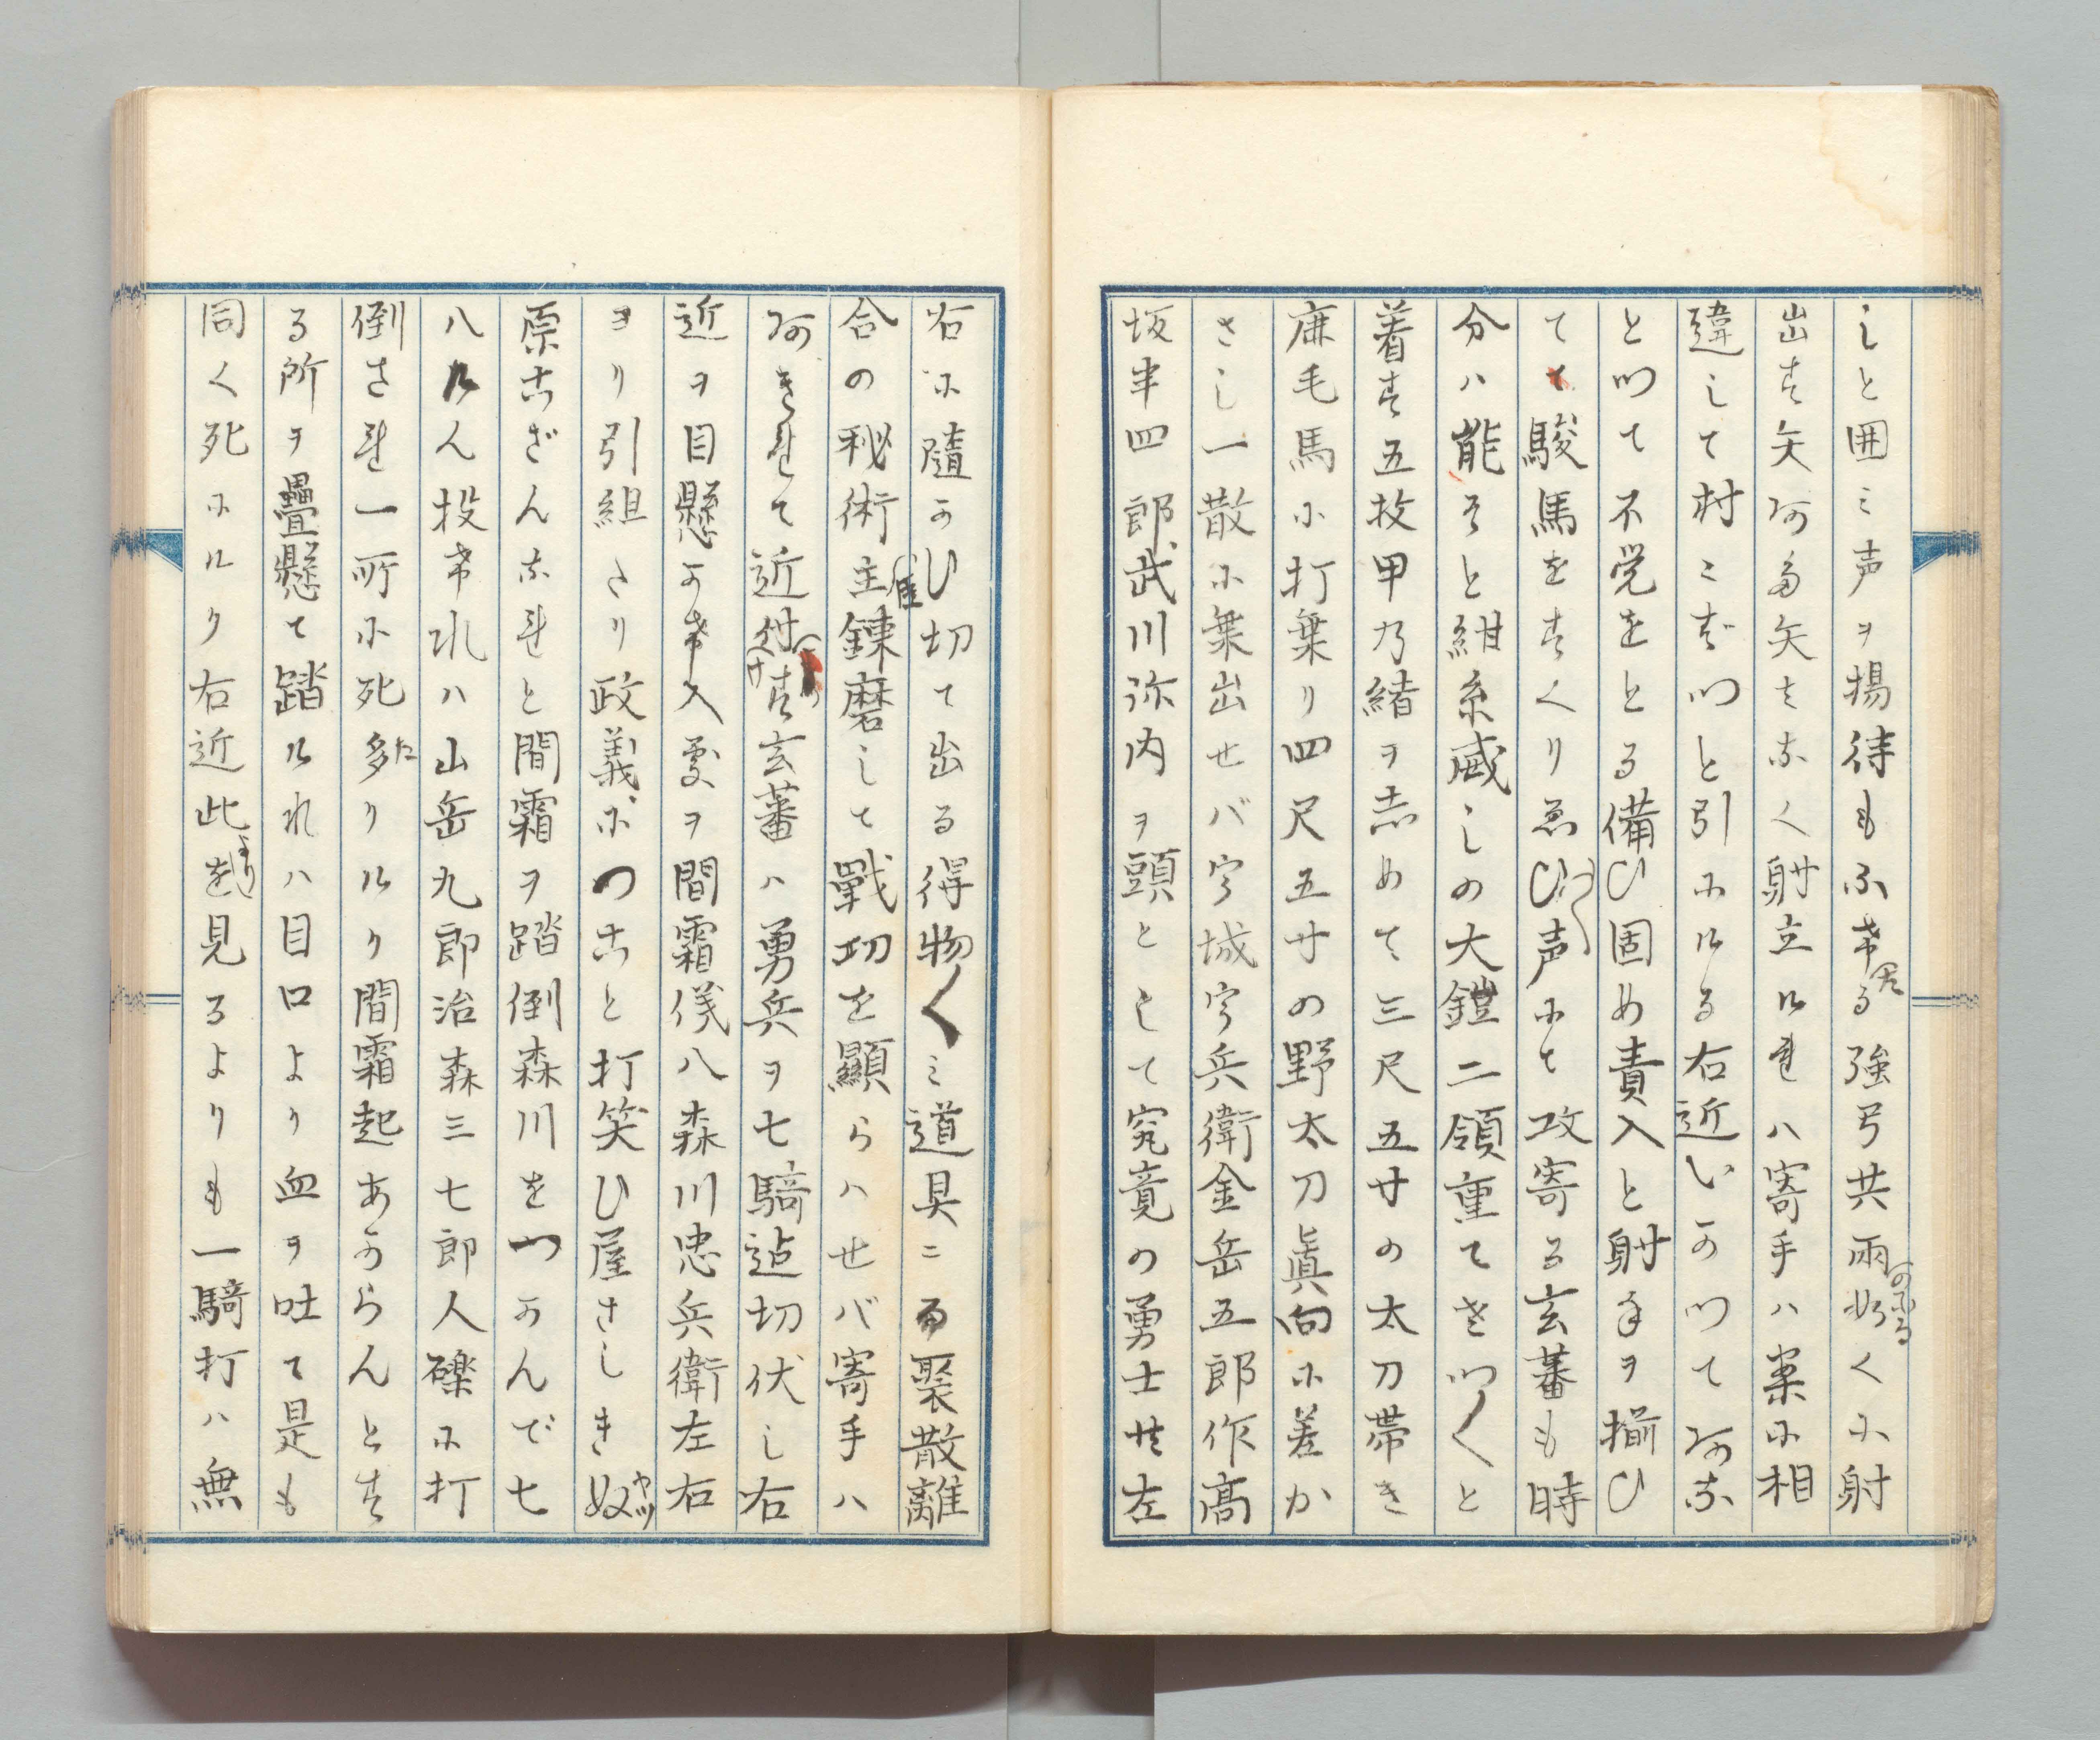 しと囲ミ声ヲ揚待もふける強弓共雨の如くに射
出す矢あた矢さなく射立ルれハ寄手ハ案に相
違して村々ぱつと引にける右近いかつてあな
とつて不覚をとる備ひ固め責入と射手ヲ揃ひ
てて駿馬をすくりゑひ声にて攻寄る玄蕃も時
分ハ能そと紺糸威しの大鎧二領重てざつくと
着す五枚甲乃緒ヲしめて三尺五寸の太刀帯き
鹿毛馬に打乗り四尺五寸の野太刀眞向に差か
さし一散に乗出せバ宇城宇兵衛金岳五郎作高
坂半四郎武川弥内ヲ頭として究竟の勇士共左
右に随かひ切て出る得物〱ミ道具ニて聚散離
合の秘術主錬磨して戰功を顯らハせバ寄手ハ
あきれて近付す玄蕃ハ勇兵ヲ七騎迠切伏し右
近ヲ目懸かけ入処ヲ間霜儀八森川忠兵衛左右
ヨリ引組たり政義につこと打笑ひ屋さしき奴
原こざんなれと間霜ヲ踏倒森川をつかんで七
八けん投けれハ山岳九郎治森三七郎人礫に打
倒され一所に死たりけり間霜起あからんとす
る所ヲ疊懸て踏けれハ目口より血ヲ吐て是も
同く死にけり右近此よし見るよりも一騎打ハ無